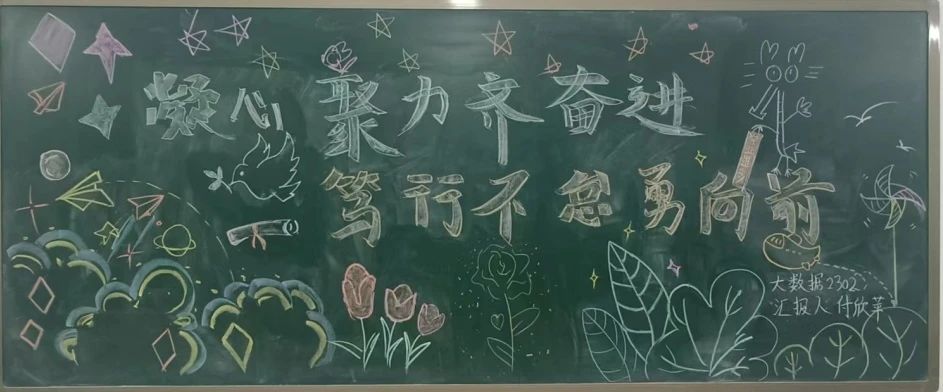 凝心聚力齐奋进
笃行不怠勇向前
大数据2302
汇报人:付欣苹